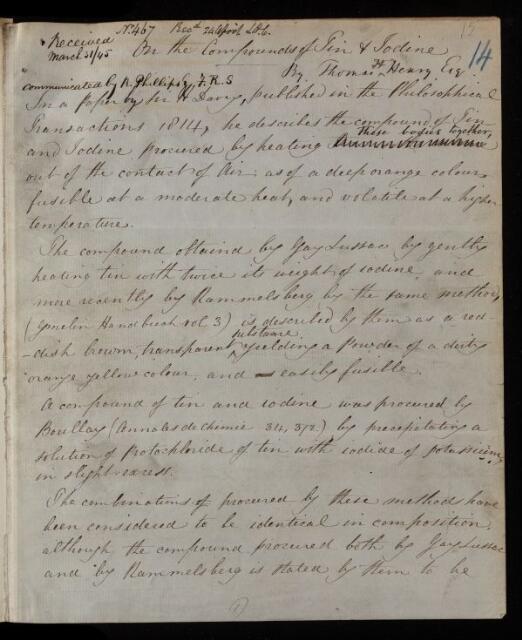 No. 467 Recd. 24 April L.H.C.
15
Received
March 31/45
14
On the Compounds of Tin & Iodine
By Thomas H. Henry Esq.
communicated by R. Phillips Esq. F.R.S
In a Paper by Sir H Davy, published in the Philosophical
Transactions 1814, he describes the compound of Tin
and Iodine procured by heating these bodies together,
out of the contact of Air; as of a deep orange colour
fusible at a moderate heat, and volatile at a higher
temperature.
The compound obtaind by Gay Lussac by gently
heating tin with twice its weight of iodine and
more recently by Rammelsberg by the same method,
(Gmelin Handbuch vol. 3) is described by them as a red-
-dish brown, transparent substance yielding a Powder of a dirty
orange yellow colour, and easily fusible.
A compound of tin and iodine was procured by
Boullay (Annales de chimie 34, 372.) by precipitating a
solution of Protochloride of tin with iodide of potassium,
in slight excess.
The combinations of procured by these methods have
been considered to be identical in composition,
although the compound procured both by Gay Lussac
and by Rammelsberg is stated by them to be